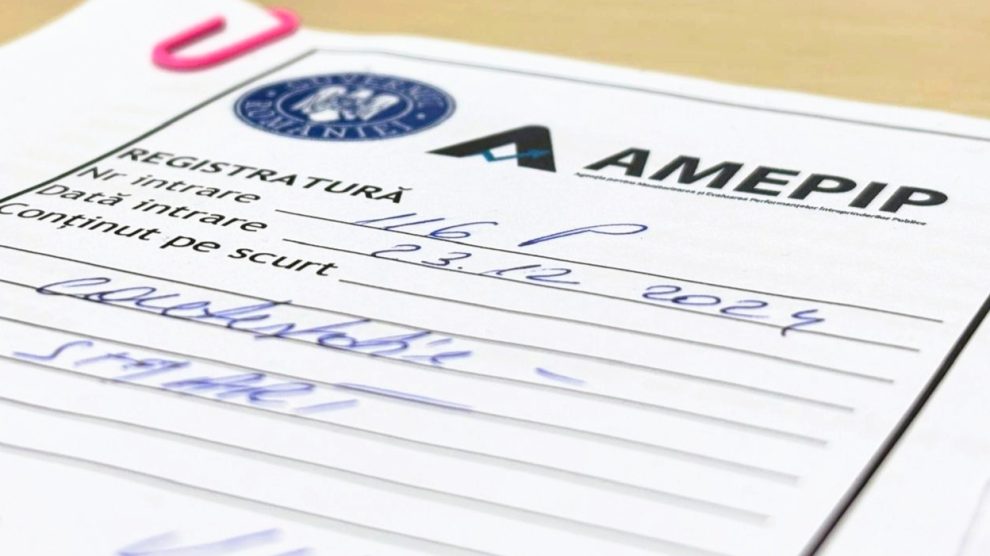 GUVERNUL ROMÂNIEI
AMEPIP
Agenția pentru Monitorizarea și Evaluarea Performanțelor Întreprinderilor Publice
REGISTRATURĂ
Nr intrare 116 P
Dată intrare 23.12 2024
Conținut pe scurt
contestație -